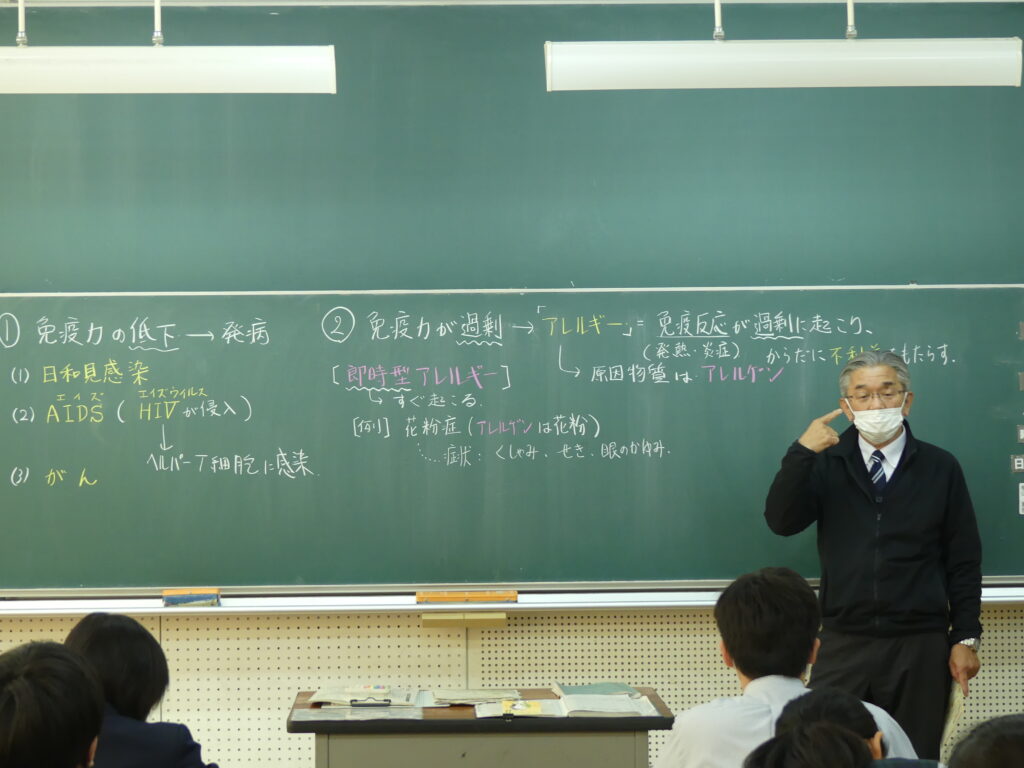 ① 免疫力の低下 → 発病
(1) 日和見感染
エイズ エイズウイルス
(2) AIDS ( HIVが侵入 )
↓
ヘルパーT細胞に感染
(3) がん
② 免疫力が過剰 → 「アレルギー」= 免疫反応が過剰に起こり、
(発熱・炎症) からだに不利益をもたらす.
→ 原因物質は アレルゲン
[即時型アレルギー]
→ すぐ起こる.
[例] 花粉症 (アレルゲンは花粉)
症状: くしゃみ、せき、眼のかゆみ.
日